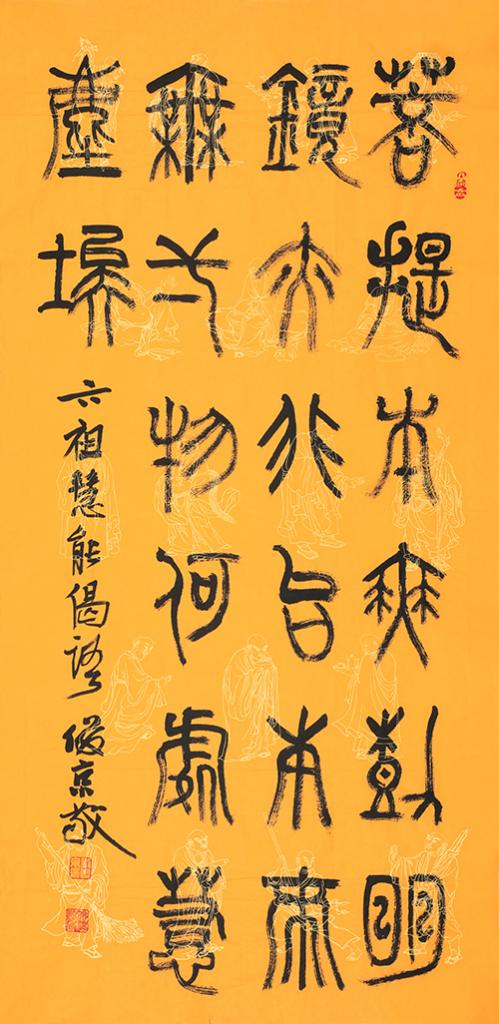 菩提本無樹明
鏡亦非台本來
無弌物何處惹
塵埃
六祖慧能偈語 京敬